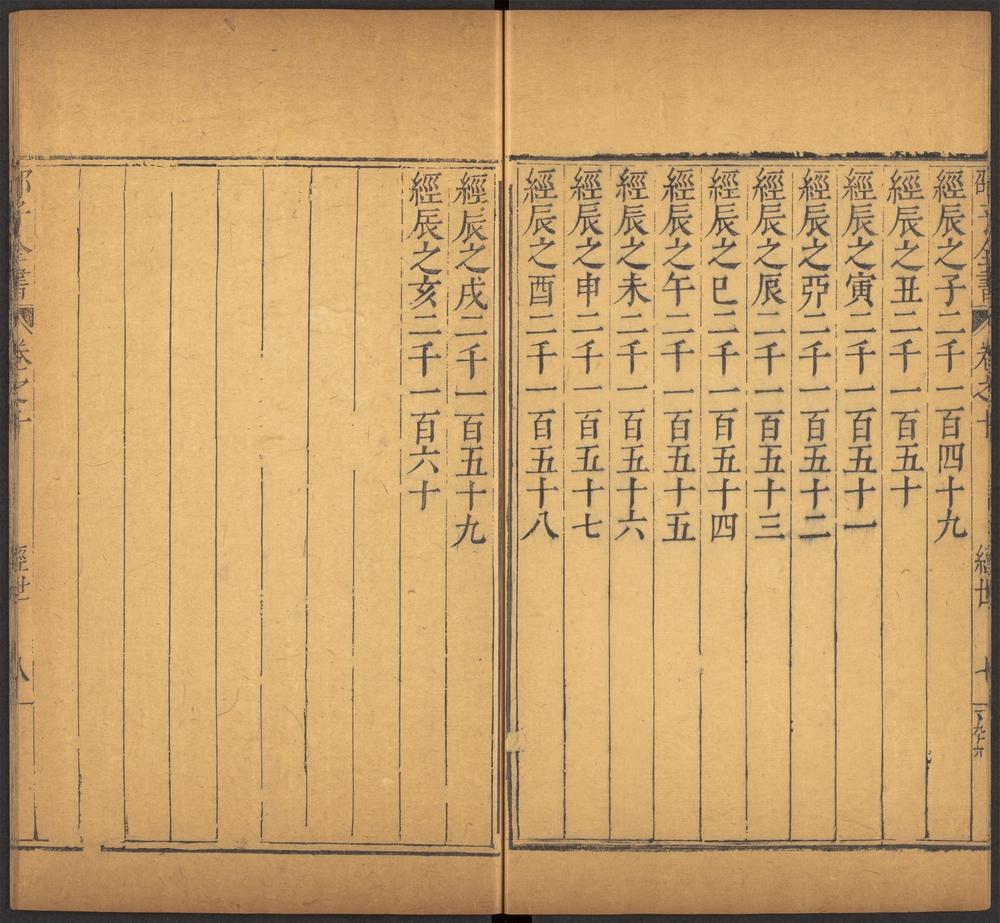 邵子全書 卷之 經世 七
經辰之子二千一百四十九
經辰之丑二千一百五十
經辰之寅二千一百五十一
經辰之夘二千一百五十二
經辰之辰二千一百五十三
經辰之巳二千一百五十四
經辰之午二千一百五十五
經辰之未二千一百五十六
經辰之申二千一百五十七
經辰之酉二千一百五十八
經辰之戌二千一百五十九
經辰之亥二千一百六十
子全書 卷之 經世 八